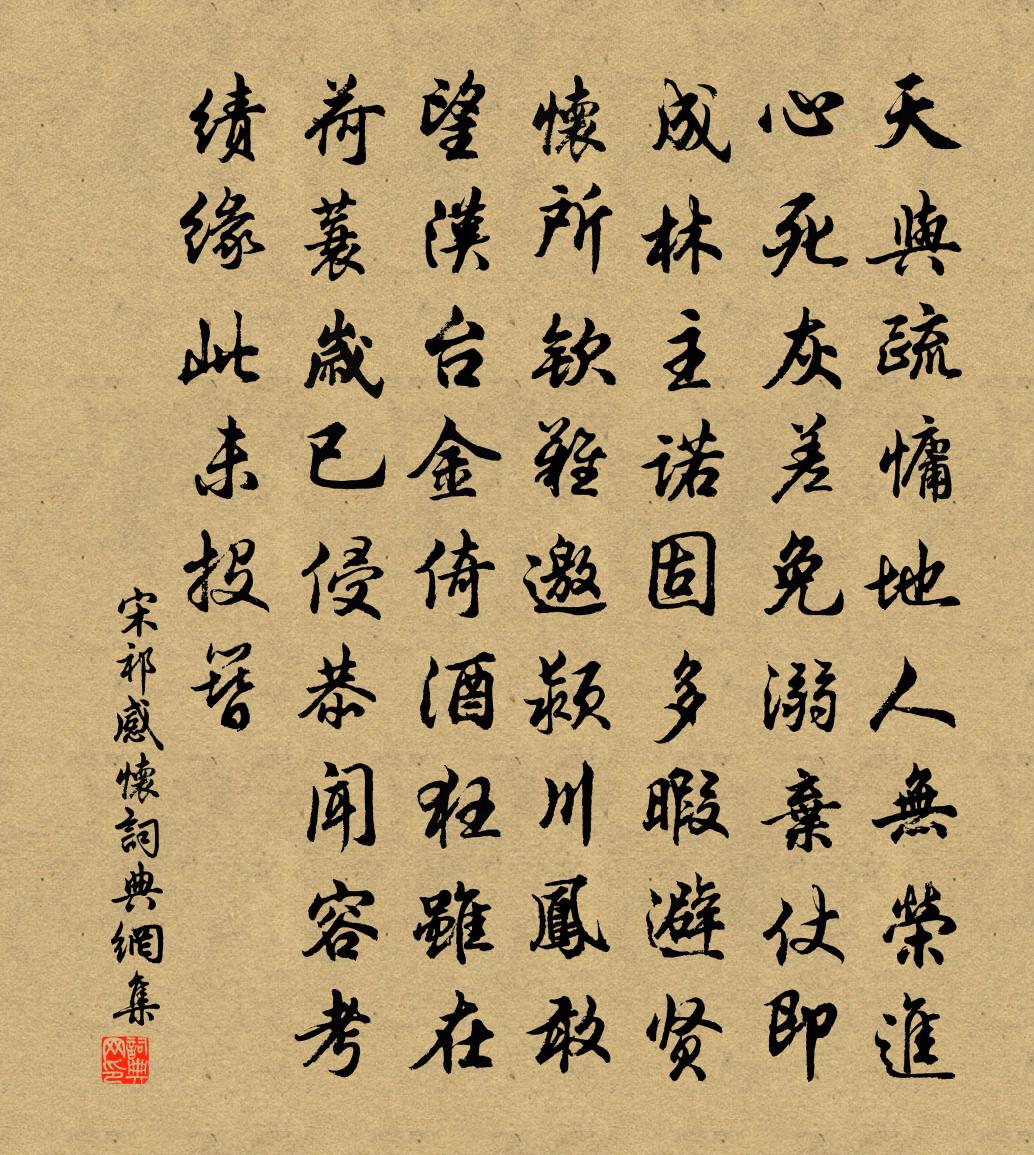 天與疏慵地人無榮進
心死灰差免溺棄仗即
成林主诺固多暇避贤
懷所欽難邀颍川鳳敢
望漢台金倚酒狂雖在
荷蓑歲已侵恭闻容考
绩缘此未投簪
宋祁感懷詞典網集
詞典网印